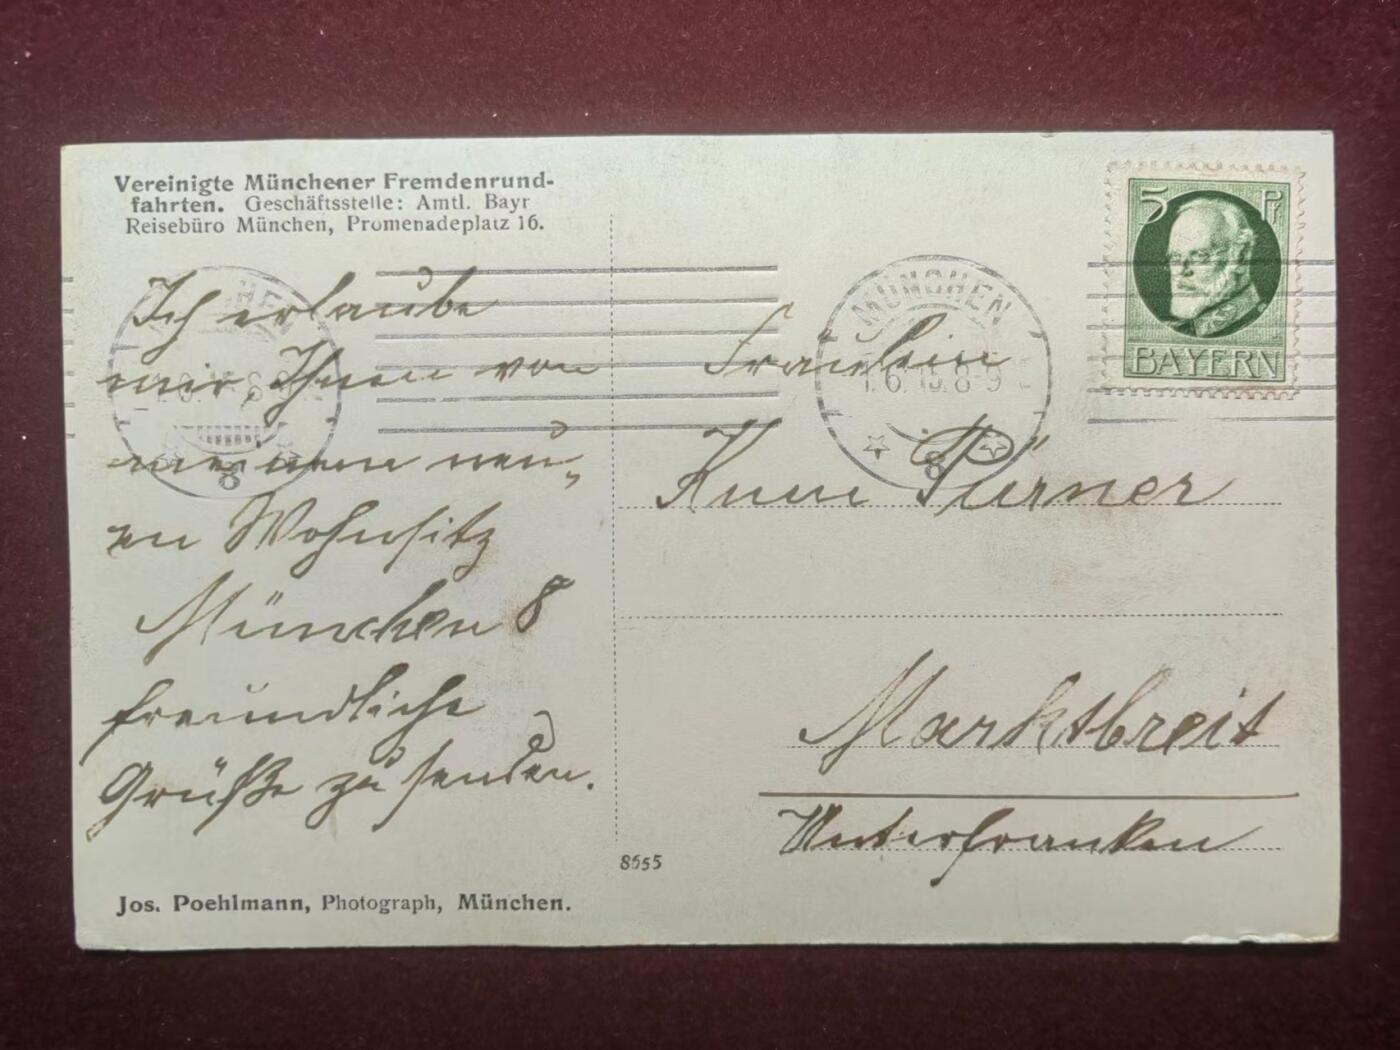 Vereinigte Münchener Fremdenrund-
fahrten. Geschäftsstelle: Amtl. Bayr
Reisebüro München, Promenadeplatz 16.
Ich erlaube
mir, Ihnen von
meinem neu-
en Wohnsitz
München 8
freundliche
Grüße zu senden.
Jos. Poehlmann, Photograph, München.
8655
5 Pf
BAYERN
MÜNCHEN
8-9
8
Fräulein
Anna Pürner
Marktbreit
Unterfranken